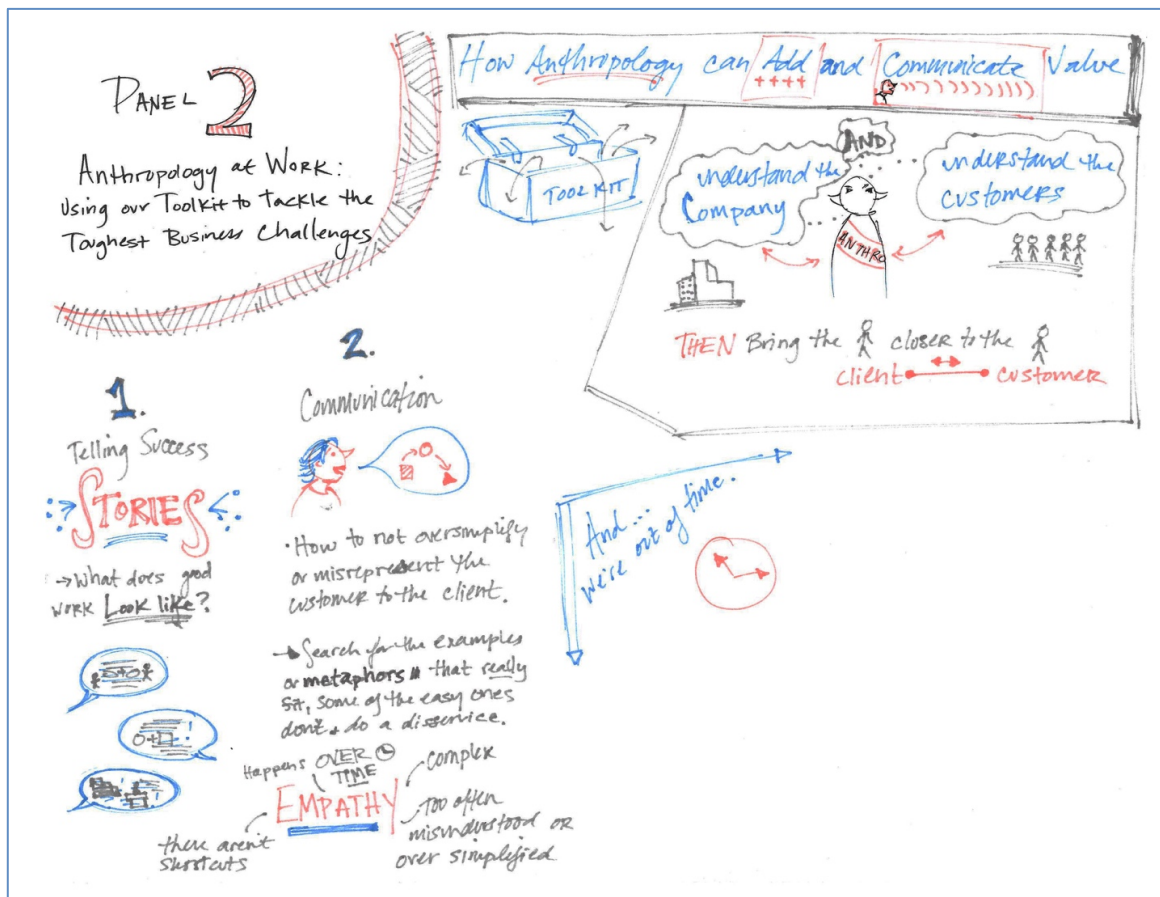 PANEL 2
Anthropology at Work:
Using our Toolkit to Tackle the
Toughest Business Challenges
How Anthropology can Add and Communicate Value
++++
TOOLKIT
AND
understand the
Company
understand the
customers
ANTHRO
THEN Bring the closer to the
client customer
1.
Telling Success
STORIES
→ What does good
work Look like?
2.
Communication
· How to not oversimplify
or misrepresent the
customer to the client.
→ Search for the examples
or metaphors that really
fit, some of the easy ones
don't + do a disservice.
Happens OVER
TIME
EMPATHY
complex
Too often
misunderstood or
over simplified
there aren't
shortcuts
And...
we're out of time.